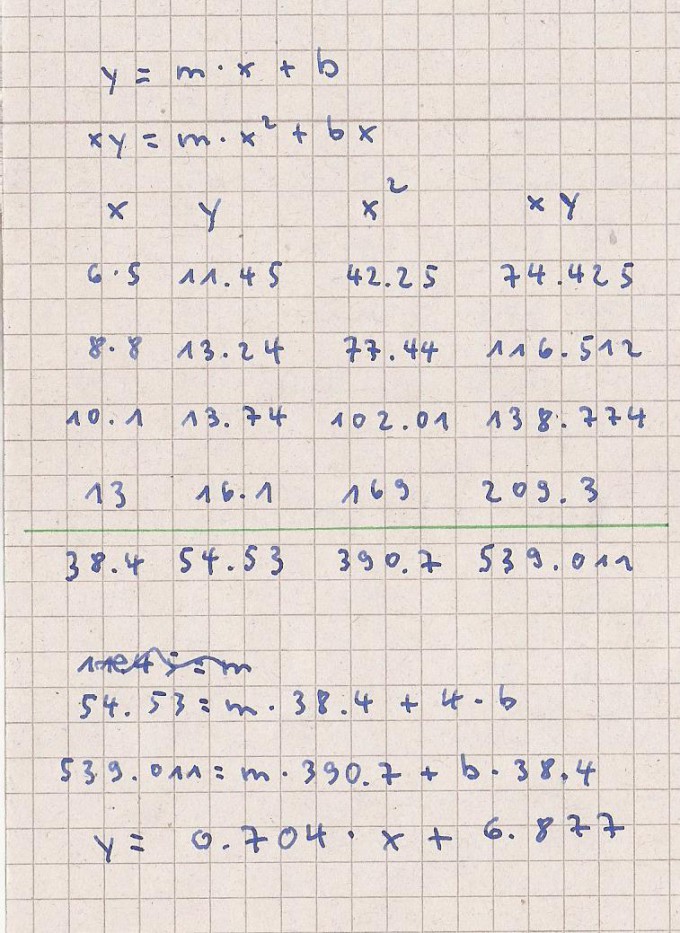 y = m · x + b
xy = m · x² + b x
x y x² x y
6.5 11.45 42.25 74.425
8.8 13.24 77.44 116.512
10.1 13.74 102.01 138.774
13 16.1 169 209.3
38.4 54.53 390.7 539.011
54.53 = m · 38.4 + 4 · b
539.011 = m · 390.7 + b · 38.4
y = 0.704 · x + 6.877